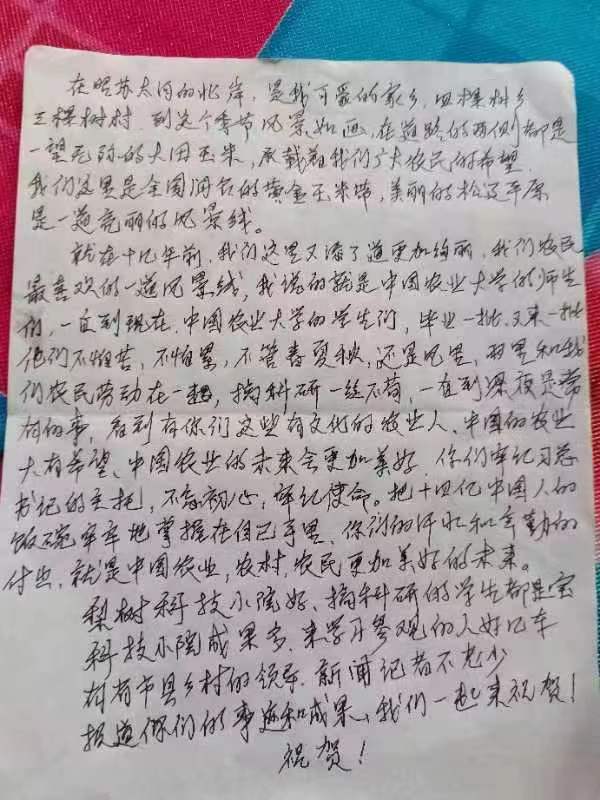 在昭苏太河的北岸，是我可爱的家乡，四棵树乡
三棵树村，到这个季节风景如画，在道路的两侧都是
一望无际的大田玉米，承载着我们广大农民的希望，
我们这里是全国闻名的黄金玉米带，美丽的松辽平原
是一道亮丽的风景线。
就在十几年前，我们这里又添了道更加绚丽，我们农民
最喜欢的一道风景线，我说的就是中国农业大学的师生
们，一直到现在，中国农业大学的学生们，毕业一批，又来一批
他们不怕苦，不怕累，不管春夏秋，还是风里，雨里和我
们农民劳动在一起，搞科研一丝不苟，一直到深夜是常
有的事，看到有你们这些有文化的农业人、中国的农业
大有希望、中国农业的未来会更加美好，你们牢记习总
书记的主托，不忘初心，牢记使命。把十四亿中国人的
饭碗牢牢地掌握在自己手里，你们的汗水和辛勤的
付出，就是中国农业，农村，农民更加美好的未来。
梨树科技小院好、搞科研的学生都是宝
科技小院成果多，来学习参观的人好几车
村有市县乡村的领导，新闻记者不老少
报道你们的事迹和成果、我们一起来祝贺！
祝贺！